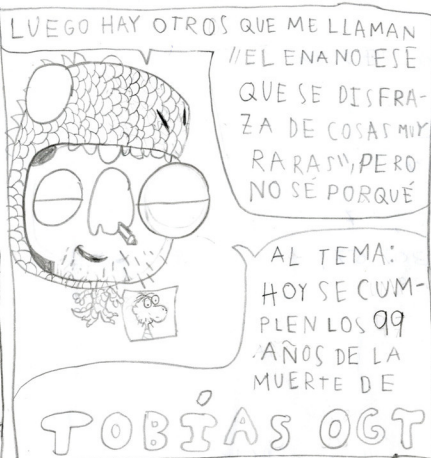 LUEGO HAY OTROS QUE ME LLAMAN
"EL ENANO ESE
QUE SE DISFRA-
ZA DE COSAS MUY
RARAS", PERO
NO SÉ PORQUÉ
AL TEMA:
HOY SE CUM-
PLEN LOS 99
AÑOS DE LA
MUERTE DE
TOBÍAS OGT